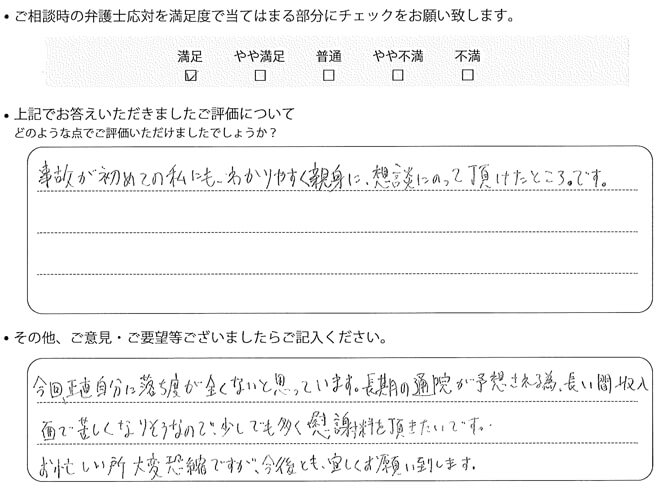 • ご相談時の弁護士応対を満足度で当てはまる部分にチェックをお願い致します。
満足 やや満足 普通 やや不満 不満
☑ □ □ □ □
• 上記でお答えいただきましたご評価について
どのような点でご評価いただけましたでしょうか？
事故が初めての私にも、わかりやすく親身に、想談にのって頂けたところ。です。
• その他、ご意見・ご要望等ございましたらご記入ください。
今回、正直自分に落ち度が全くないと思っています。長期の通院が予想される為、長い間収入
面で苦しくなりそうなので、少しでも多く慰謝料を頂きたいです。
お忙しい所大変恐縮ですが、今後とも、宜しくお願い致します。